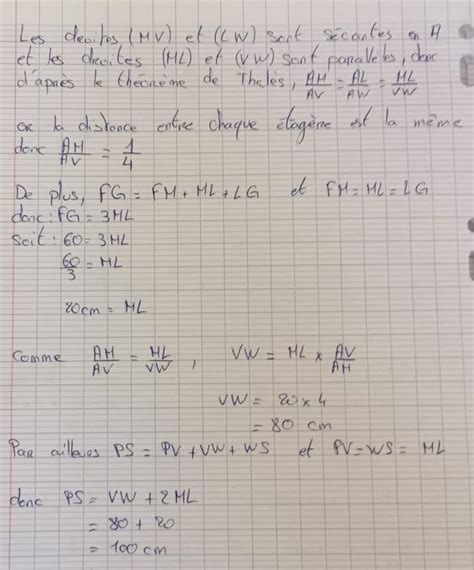 Les droites (MV) et (LW) sont sécantes en A
et les droites (ML) et (VW) sont parallèles, donc
d'après le théorème de Thalès, AM/AV = AL/AW = ML/VW
or la distance entre chaque étagère est la même
donc AM/AV = 1/4
De plus, FG = FM + ML + LG et FM = ML = LG
donc : FG = 3ML
Soit : 60 = 3ML
60/3 = ML
20cm = ML
Comme AM/AV = ML/VW , VW = ML × AV/AM
VW = 20 × 4
= 80 cm
Par ailleurs PS = PV + VW + WS et PV = WS = ML
donc PS = VW + 2ML
= 80 + 20
= 100 cm